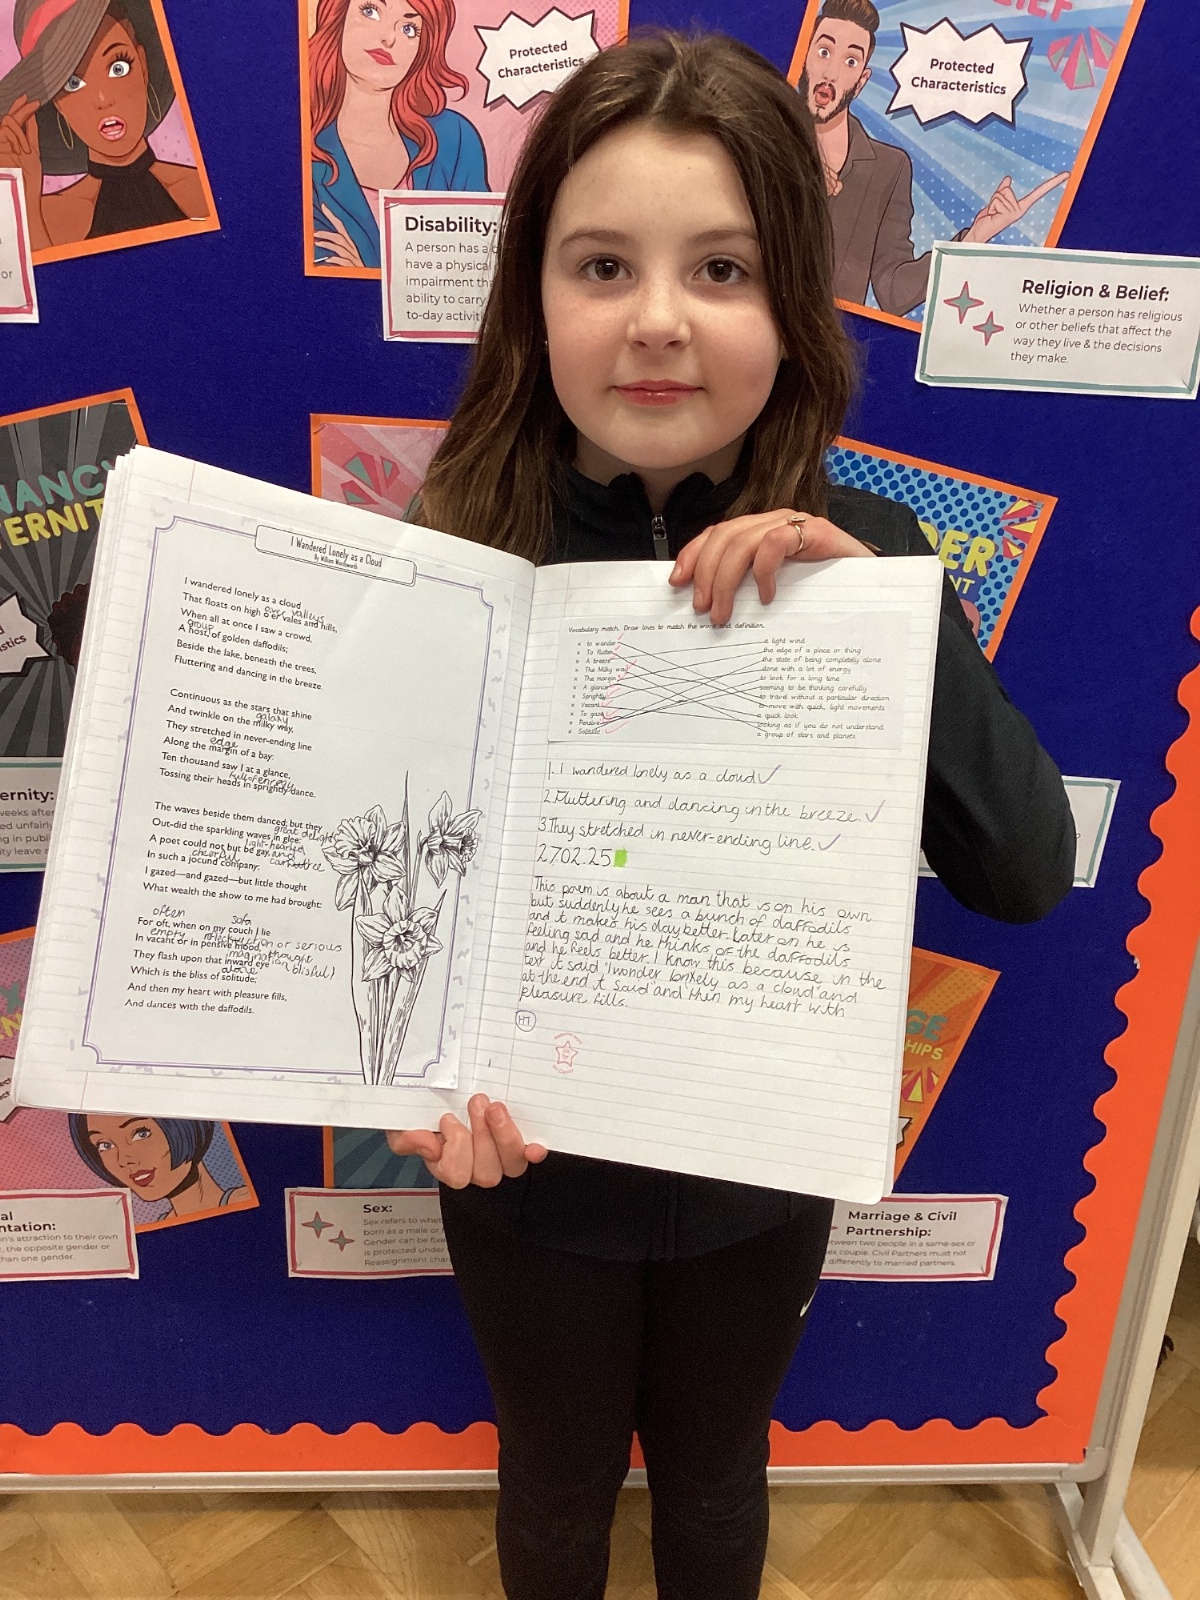 Protected
Characteristics
Protected
Characteristics
Disability:
A person has a
have a physical
impairment
ability to carry
to-day
Religion & Belief:
Whether a person has religious
or other beliefs that affect the
way they live & the decisions
they make.
I Wandered Lonely as a Cloud
By William Wordsworth
I wandered lonely as a cloud
over valleys
That floats on high o'er vales and hills,
When all at once I saw a crowd,
group
A host, of golden daffodils;
Beside the lake, beneath the trees,
Fluttering and dancing in the breeze.
Continuous as the stars that shine
galaxy
And twinkle on the milky way,
They stretched in never-ending line
edge
Along the margin of a bay:
Ten thousand saw I at a glance,
full of energy
Tossing their heads in sprightly dance.
The waves beside them danced; but they
Out-did the sparkling waves in glee:
great delight
A poet could not but be gay,
light-hearted
and
cheerful
In such a jocund company:
I gazed—and gazed—but little thought
What wealth the show to me had brought:
often sofa
For oft, when on my couch I lie
empty reflection or serious
In vacant or in pensive mood,
thought
They flash upon that inward eye
imagination
alone
Which is the bliss of solitude;
And then my heart with pleasure fills,
And dances with the daffodils.
Vocabulary match. Draw lines to match the word and definition.
to wander
To flutter
A breeze
The Milky way
The margin
A glance
Sprightly
Vacant
To gaze
Pensive
Solitude
a light wind
the edge of a place or thing
the state of being completely alone
done with a lot of energy
to look for a long time
seeming to be thinking carefully
to travel without a particular direction
to move with quick, light movements
a quick look
looking as if you do not understand
a group of stars and planets
1. I wandered lonely as a cloud
2. Fluttering and dancing in the breeze.
3 They stretched in never-ending line.
27.02.25
This poem is about a man that is on his own
but suddenly he sees a bunch of daffodils
and it makes his day better. Later on he is
feeling sad and he thinks of the daffodils
and he feels better. I know this because in the
text it said "I wonder lonkely as a cloud" and
at the end it said "and then my heart with
pleasure fills.
HT
Sex:
Sex refers to
born as a male or
Gender can be
is protected under
Reassignment
Marriage & Civil
Partnership:
between two people in a same-sex or
couple. Civil Partners must not
differently to married partners.
attraction to their own
the opposite gender or
than one gender.